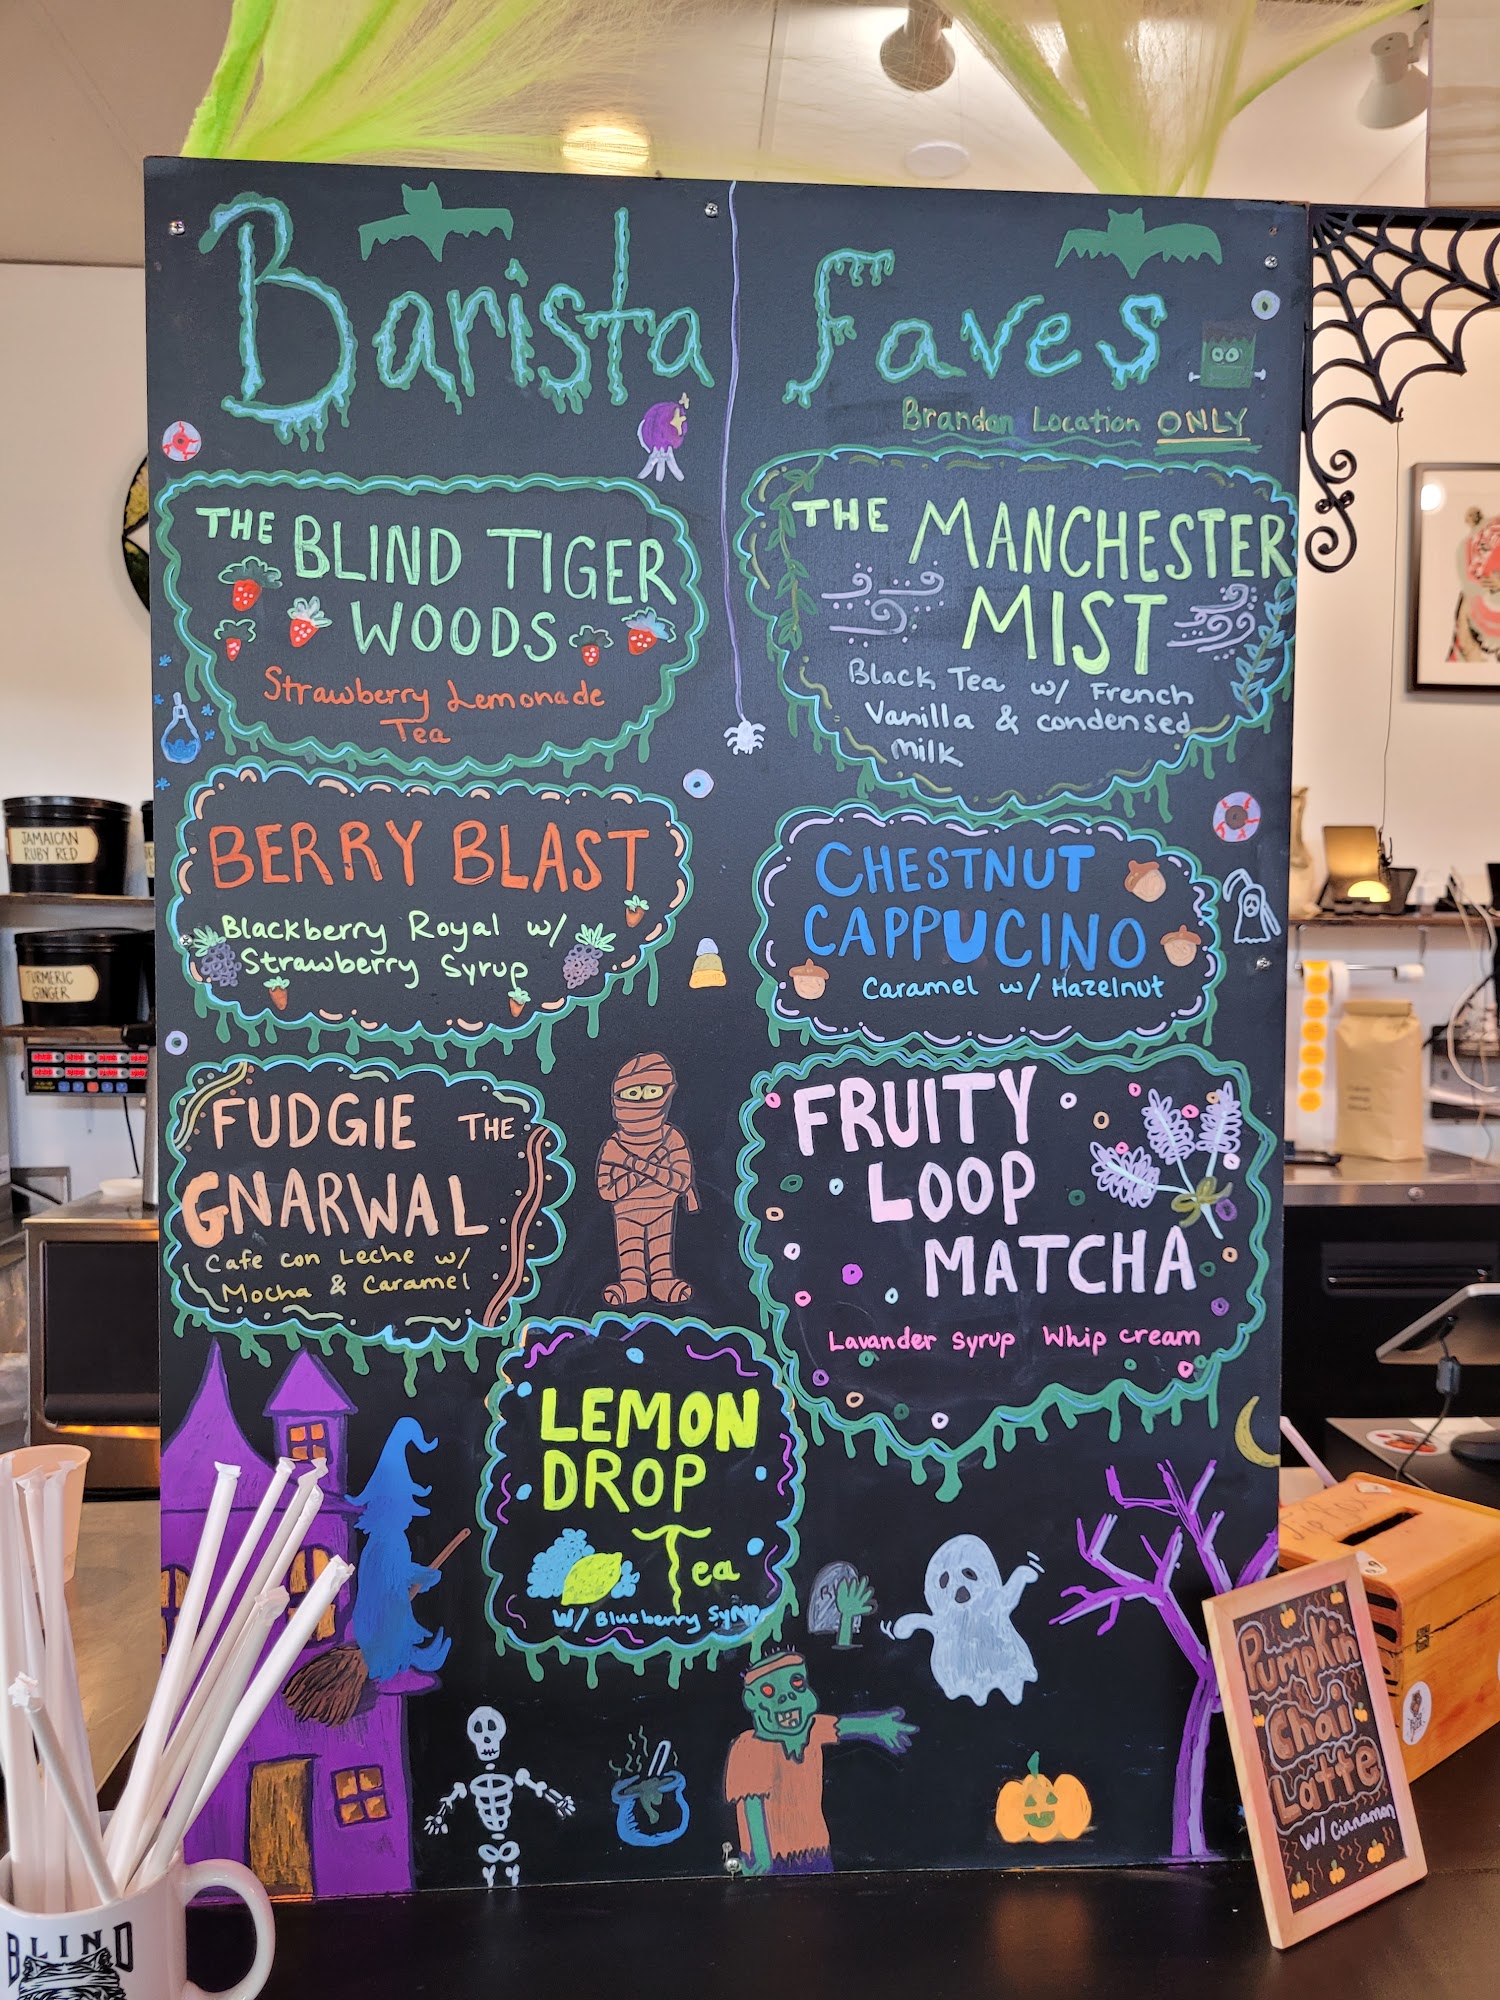 Barista Faves
Brandon Location ONLY
THE BLIND TIGER
WOODS
Strawberry Lemonade
Tea
THE MANCHESTER
MIST
Black Tea w/ French
Vanilla & condensed
Milk
BERRY BLAST
Blackberry Royal w/
Strawberry Syrup
CHESTNUT
CAPPUCINO
Caramel w/ Hazelnut
FUDGIE THE
GNARWAL
Cafe con Leche w/
Mocha & Caramel
FRUITY
LOOP
MATCHA
Lavander syrup Whip cream
LEMON
DROP
Tea
w/ Blueberry Syrup
Pumpkin
Chai
Latte
w/ cinnamon
JAMAICAN
RUBY RED
TURMERIC
GINGER
BLIND